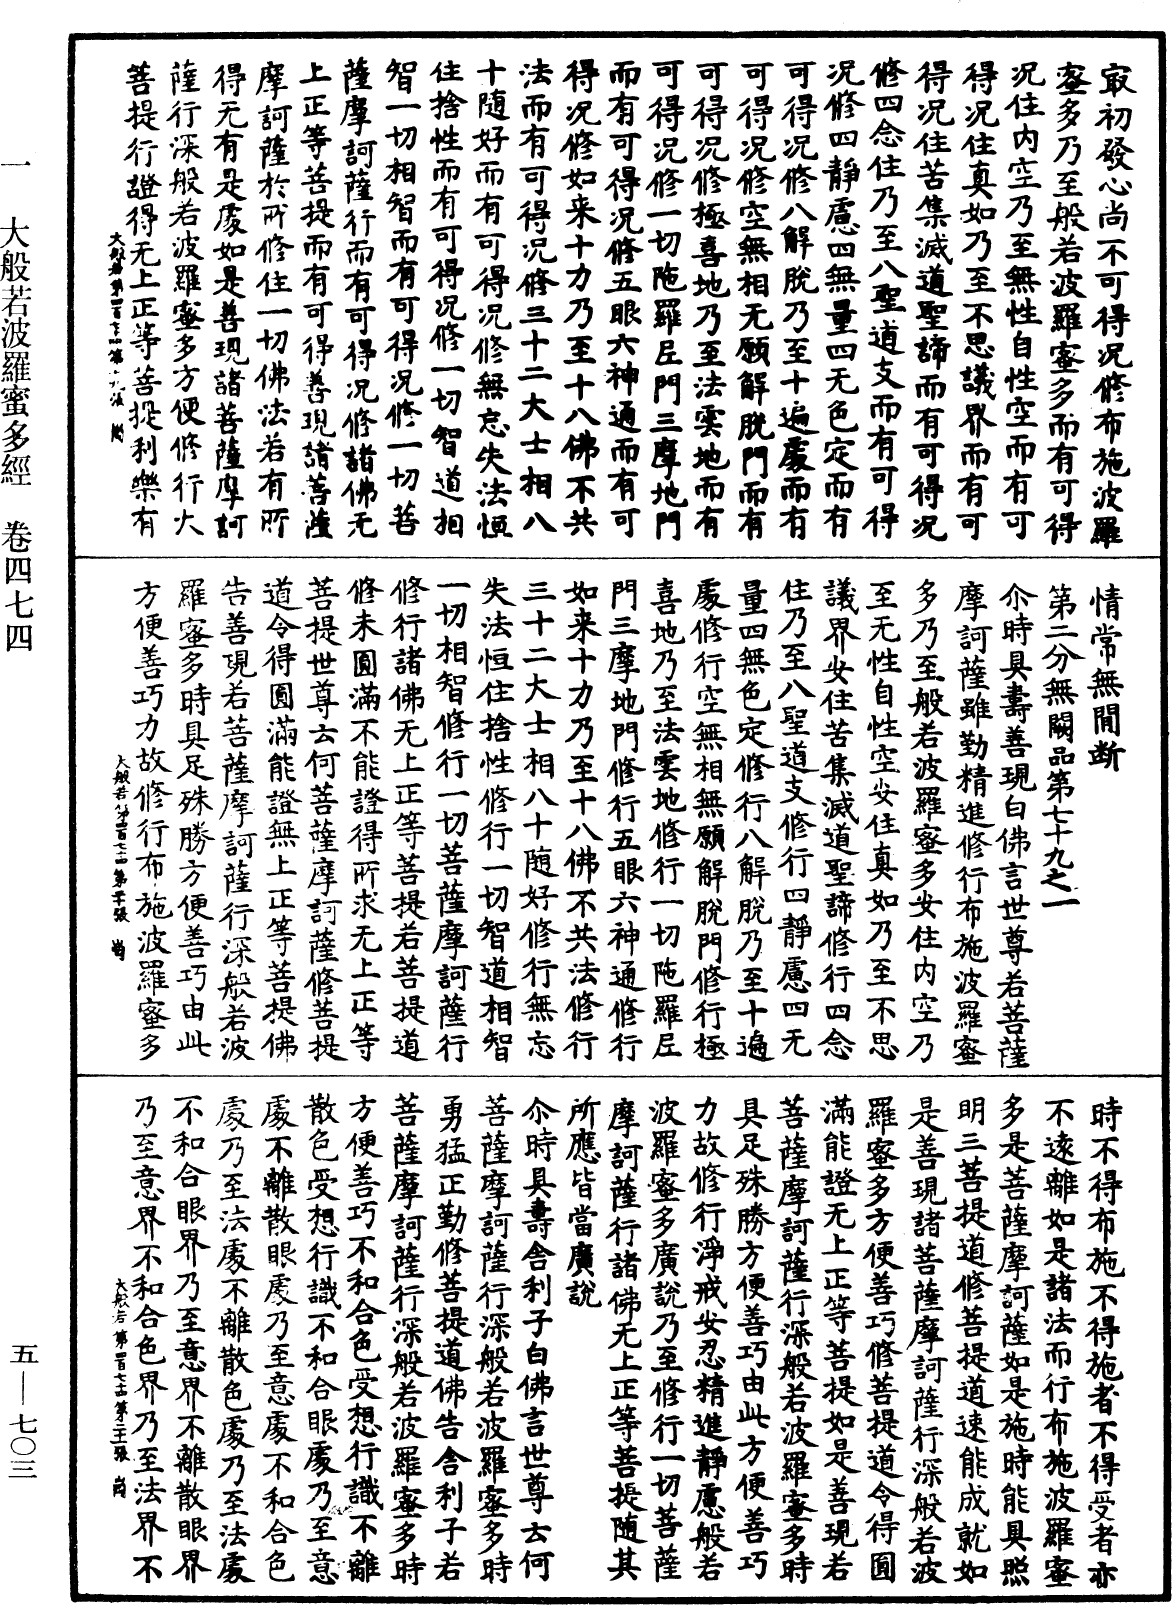 㝡初發心尚不可得況修布施波羅
蜜多乃至般若波羅蜜多而有可得
況住内空乃至無性自性空而有可
得況住真如乃至不思議界而有可
得況住苦集滅道聖諦而有可得況
修四念住乃至八聖道支而有可得
況修四靜慮四無量四无色定而有
可得況修八解脫乃至十遍處而有
可得況修空無相无願解脫門而有
可得況修極喜地乃至法雲地而有
可得況修一切陁羅尼門三摩地門
而有可得況修五眼六神通而有可
得況修如来十力乃至十八佛不共
法而有可得況修三十二大士相八
十随好而有可得況修無忘失法恒
住捨性而有可得況修一切智道相
智一切相智而有可得況修一切菩
薩摩訶薩行而有可得況修諸佛无
上正等菩提而有可得善現諸菩薩
摩訶薩於所修住一切佛法若有所
得无有是處如是善現諸菩薩摩訶
薩行深般若波羅蜜多方便修行大
菩提行證得无上正等菩提利樂有
情常無間斷
第二分無闕品第七十九之一
尒時具壽善現白佛言世尊若菩薩
摩訶薩雖勤精進修行布施波羅蜜
多乃至般若波羅蜜多安住内空乃
至无性自性空安住真如乃至不思
議界安住苦集滅道聖諦修行四念
住乃至八聖道支修行四靜慮四无
量四無色定修行八解脫乃至十遍
處修行空無相無願解脫門修行極
喜地乃至法雲地修行一切陁羅尼
門三摩地門修行五眼六神通修行
如来十力乃至十八佛不共法修行
三十二大士相八十随好修行無忘
失法恒住捨性修行一切智道相智
一切相智修行一切菩薩摩訶薩行
修行諸佛无上正等菩提若菩提道
修未圓滿不能證得所求无上正等
菩提世尊云何菩薩摩訶薩修菩提
道令得圓滿能證無上正等菩提佛
告善現若菩薩摩訶薩行深般若波
羅蜜多時具足殊勝方便善巧由此
方便善巧力故修行布施波羅蜜多
時不得布施不得施者不得受者亦
不遠離如是諸法而行布施波羅蜜
多是菩薩摩訶薩如是施時能具照
明三菩提道修菩提道速能成就如
是善現諸菩薩摩訶薩行深般若波
羅蜜多方便善巧修菩提道令得圓
滿能證无上正等菩提如是善現若
菩薩摩訶薩行深般若波羅蜜多時
具足殊勝方便善巧由此方便善巧
力故修行淨戒安忍精進靜慮般若
波羅蜜多廣說乃至修行一切菩薩
摩訶薩行諸佛无上正等菩提随其
所應皆當廣說
尒時具壽舎利子白佛言世尊云何
菩薩摩訶薩行深般若波羅蜜多時
勇猛正勤修菩提道佛告舎利子若
菩薩摩訶薩行深般若波羅蜜多時
方便善巧不和合色受想行識不離
散色受想行識不和合眼處乃至意
處不離散眼處乃至意處不和合色
處乃至法處不離散色處乃至法處
不和合眼界乃至意界不離散眼界
乃至意界不和合色界乃至法界不
大般若第四百七十四第二十張
大般若第四百七十四第二十一張
一 大般若波羅蜜多經 卷四七四
五—七〇三